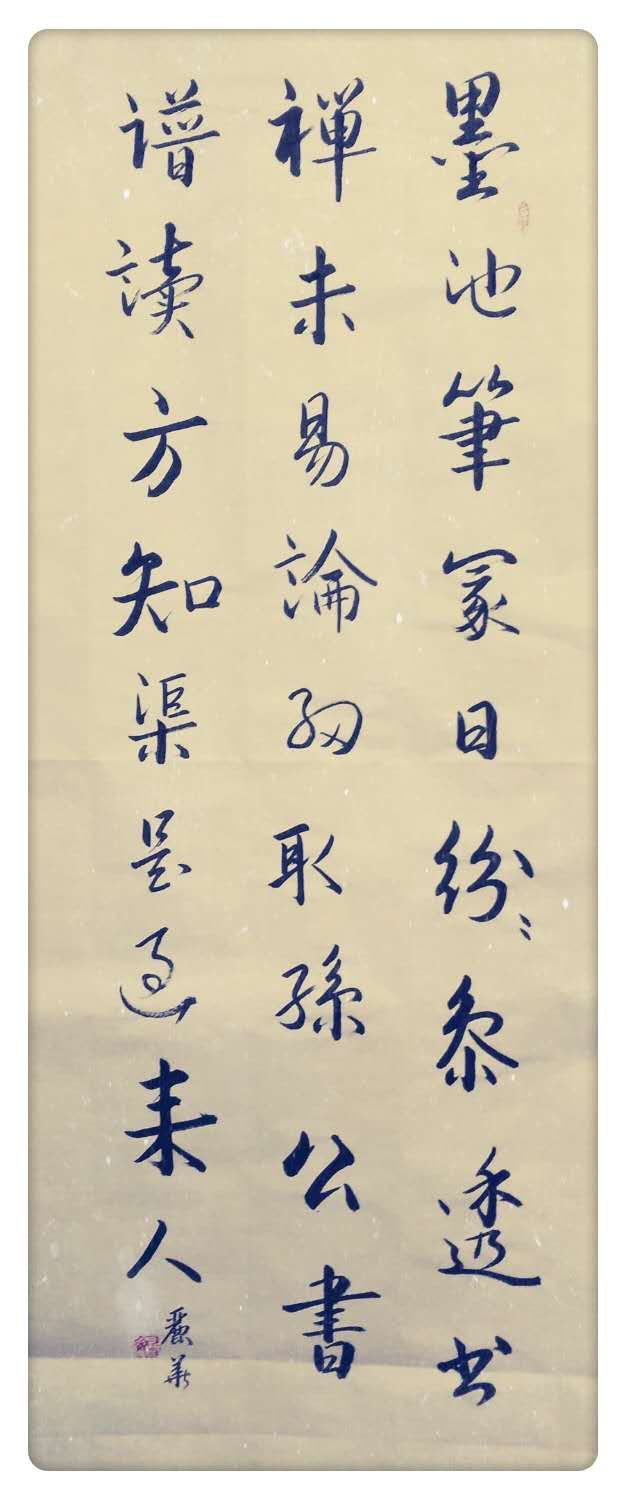 墨池筆冢日紛〻參透书
禪未易論細取孫公書
譜讀方知渠是過来人
麗華